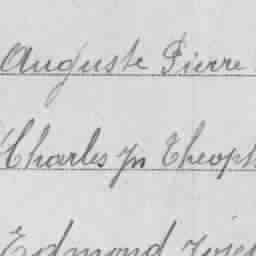 Auguste Pierre
Charles Jn Theoph
Edmond Josep